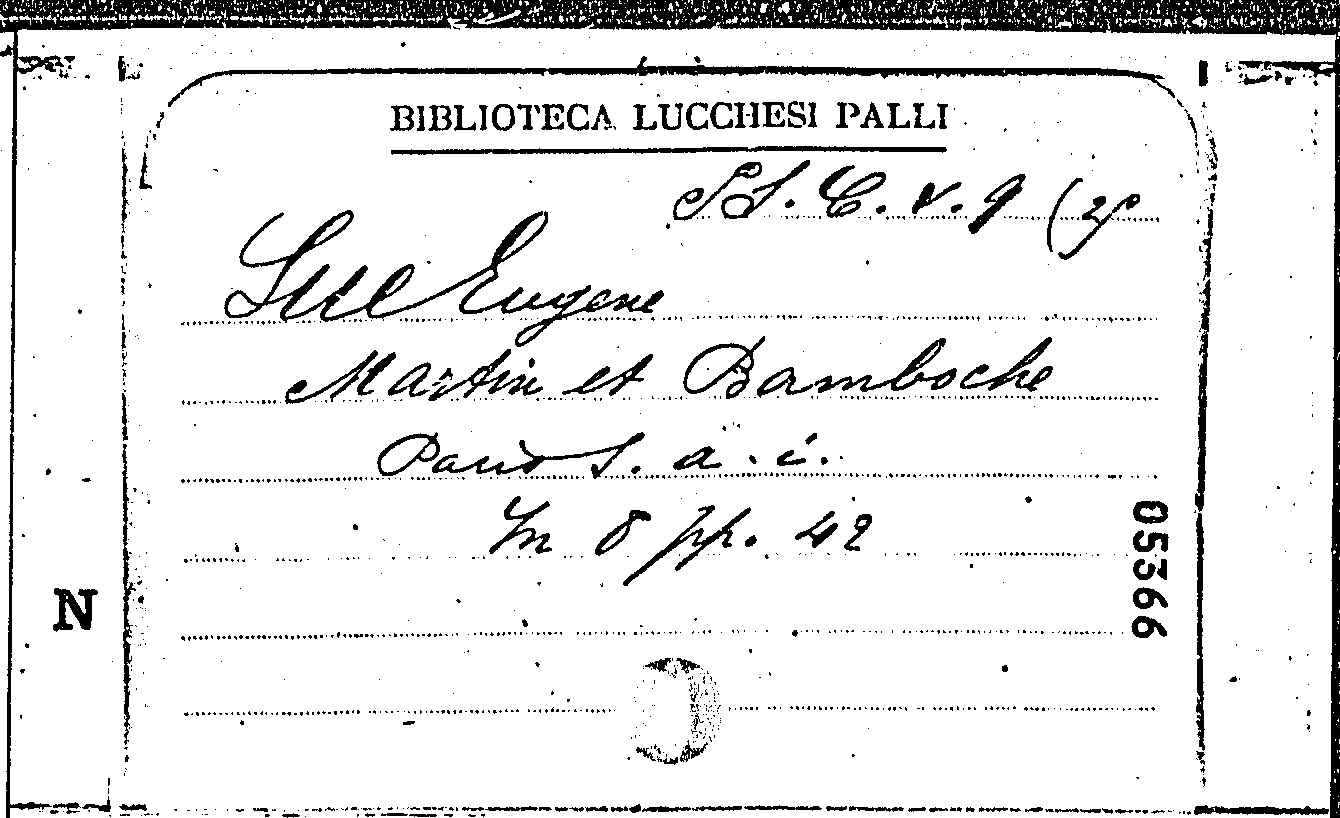 BIBLIOTECA LUCCHESI PALLI
C. V. 9 (2)
Sue Eugene
Martin et Bamboche
Paris S. a. i.
In 8 pp. 42
05366
N